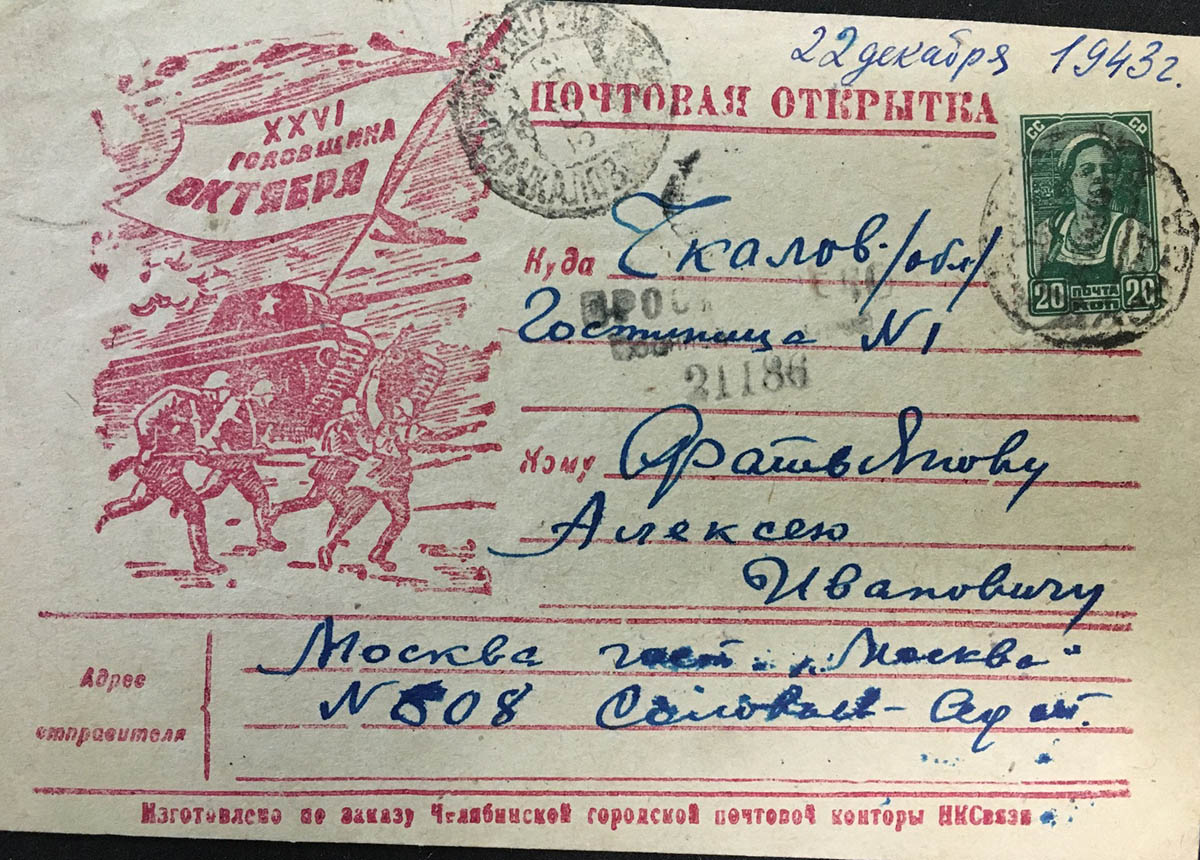 22 декабря 1943 г.
ПОЧТОВАЯ ОТКРЫТКА
XXVI
ГОДОВЩИНА
ОКТЯБРЯ
СС СР
20 ПОЧТА КОП 20
Куда Чкалов /обл/
Гостиница N1
21186
Кому
Алексею
Ивановичу
Адрес
отправителя
Москва гост. „Москва"
N 508
Изготовлено по заказу Челябинской городской почтовой конторы НКСвязи